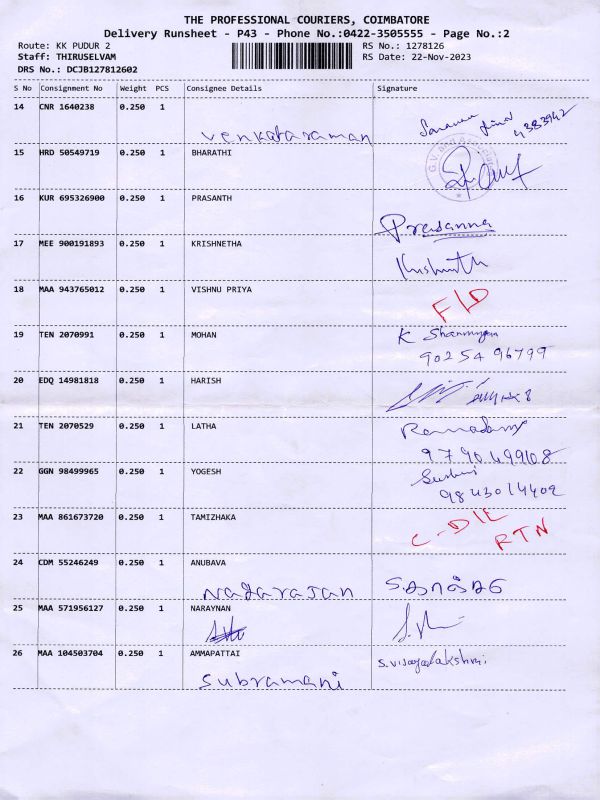 THE PROFESSIONAL COURIERS, COIMBATORE
Delivery Runsheet - P43 - Phone No.:0422-3505555 - Page No.:2
Route: KK PUDUR 2 RS No.: 1278126
Staff: THIRUSELVAM RS Date: 22-Nov-2023
DRS No.: DCJB127812602
S No Consignment No Weight PCS Consignee Details Signature
14 CNR 1640238 0.250 1
Venkataraman
15 HRD 50549719 0.250 1 BHARATHI
16 KUR 695326900 0.250 1 PRASANTH
Prasanna
17 MEE 900191893 0.250 1 KRISHNETHA
18 MAA 943765012 0.250 1 VISHNU PRIYA
F/D
19 TEN 2070991 0.250 1 MOHAN K
90254 96799
20 EDQ 14981818 0.250 1 HARISH
21 TEN 2070529 0.250 1 LATHA
9790499108
22 GGN 98499965 0.250 1 YOGESH
9843014402
23 MAA 861673720 0.250 1 TAMIZHAKA
RTN
24 CDM 55246249 0.250 1 ANUBAVA
Nagarajan
25 MAA 571956127 0.250 1 NARAYNAN
26 MAA 104503704 0.250 1 AMMAPATTAI S. Vijayalakshmi
Subramani